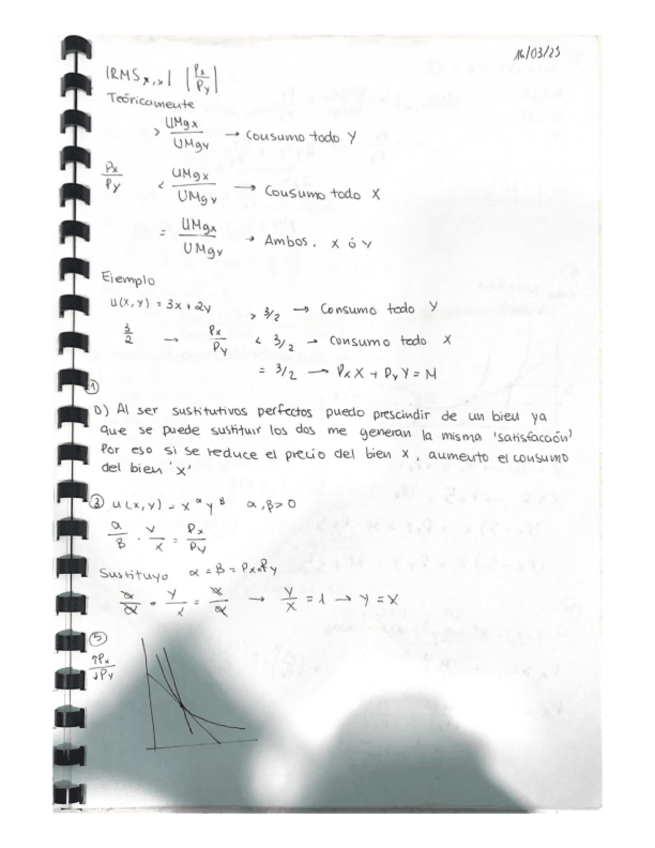 16/03/23
|RMS x,x| |Px/Py|
Teóricamente
> UMgx/UMgy → Consumo todo Y
Px/Py < UMgx/UMgy → Consumo todo X
= UMgx/UMgy → Ambos. X ó Y
Ejemplo
u(x,y) = 3x + 2y > 3/2 → Consumo todo Y
3/2 → Px/Py < 3/2 → Consumo todo X
= 3/2 → PxX + PyY = M
①
D) Al ser sustitutivos perfectos puedo prescindir de un bien ya
que se puede sustituir los dos me generan la misma 'satisfacción'
Por eso si se reduce el precio del bien X, aumento el consumo
del bien 'X'
③ u(x,y) = x^α y^β α,β>0
α/β · Y/X = Px/Py
Sustituyo α = β = Px=Py
α/α · Y/X = α/α → Y/X = 1 → Y = X
⑤
↑Px/↓Py